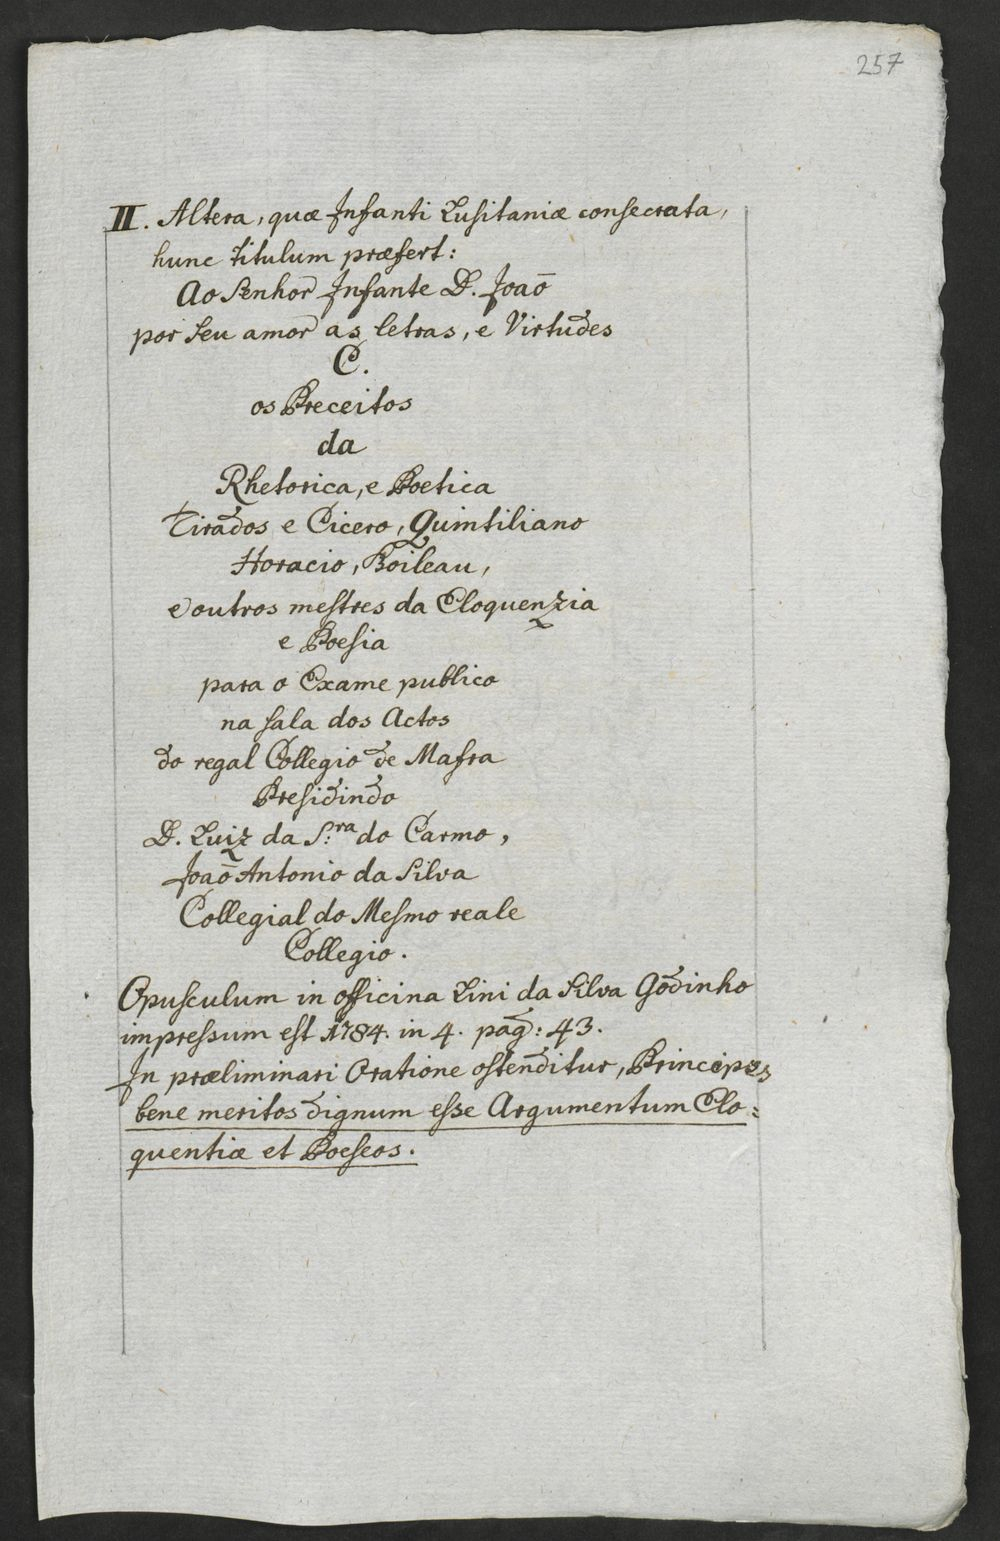 257
II. Altera, quæ Infanti Lusitaniæ consecrata,
hunc titulum præfert:
Ao Senhor Infante D. Joaõ
por seu amor as letras, e Virtudes
C.
os Preceitos
da
Rhetorica, e Poetica
Tirados e Cicero, Quintiliano
Horacio, Boileau,
e outros mestres da Eloquenzia
e Poesia
para o Exame publico
na sala dos Actos
do regal Collegio de Mafra
Presidindo
D. Luiz da S.ra do Carmo,
Joaõ Antonio da Silva
Collegial do Mesmo reale
Collegio.
Opusculum in officina Lini da Silva Godinho
impressum est 1784. in 4. pag: 43.
In præliminari Oratione ostenditur, Principes
bene meritos dignum esse Argumentum Elo=
quentiæ et Poeseos.